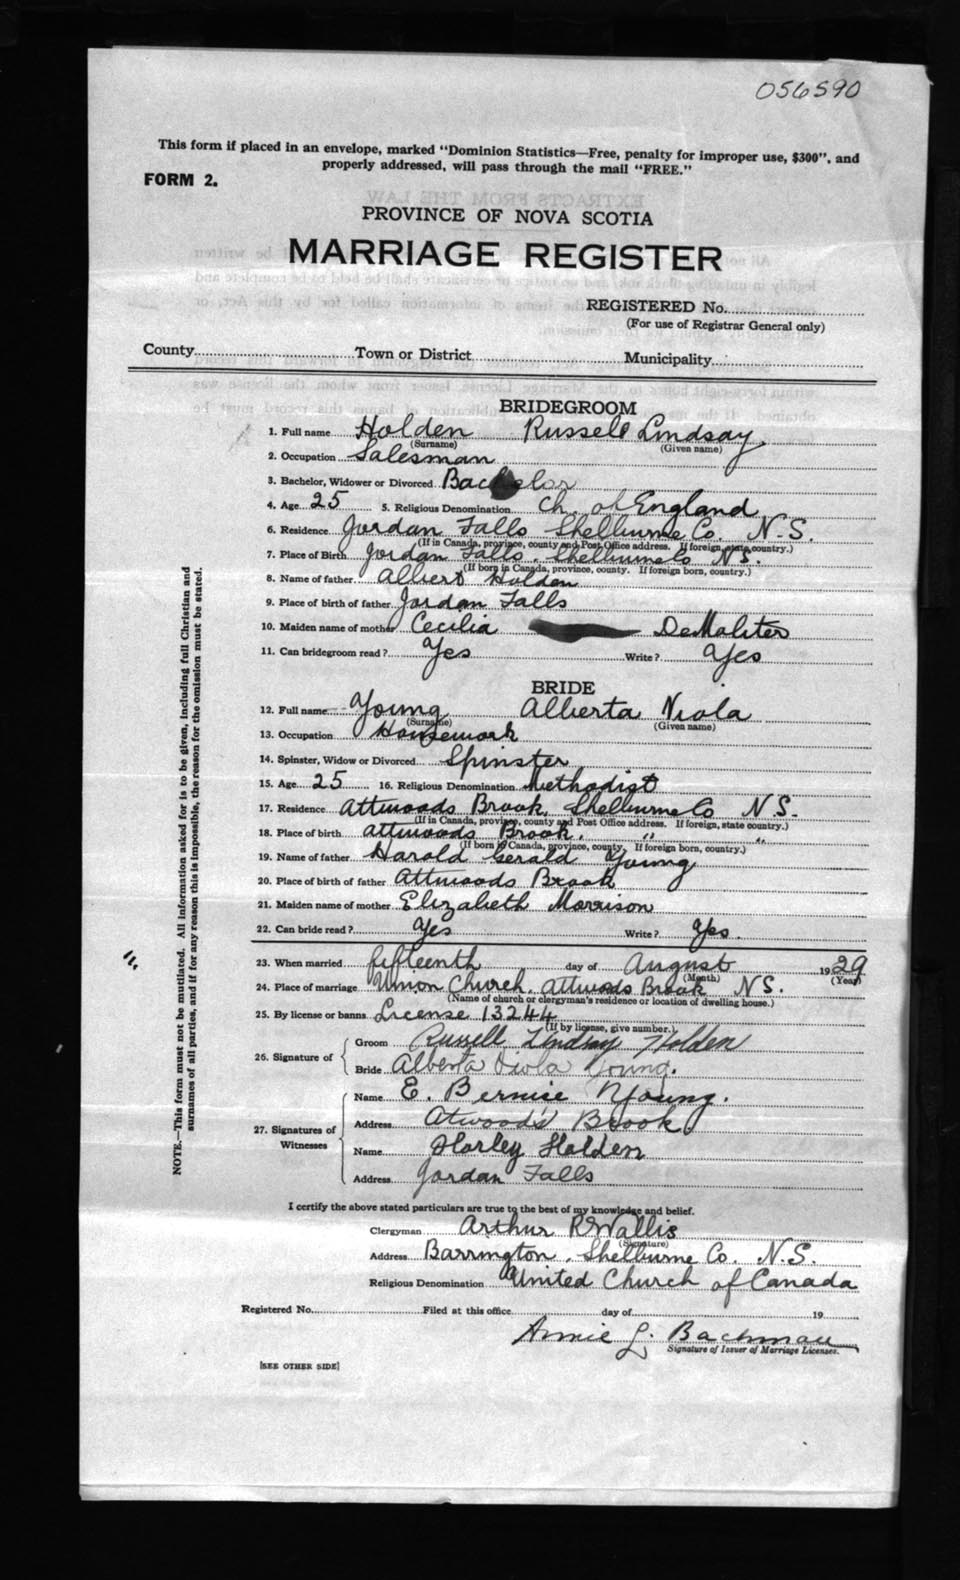 056590
This form if placed in an envelope, marked "Dominion Statistics—Free, penalty for improper use, $300", and
properly addressed, will pass through the mail "FREE."
FORM 2.
PROVINCE OF NOVA SCOTIA
MARRIAGE REGISTER
REGISTERED No.
(For use of Registrar General only)
County Town or District Municipality
BRIDEGROOM
1. Full name Holden Russell Lindsay
(Surname) (Given name)
2. Occupation Salesman
3. Bachelor, Widower or Divorced Bachelor
4. Age 25 5. Religious Denomination Ch. of England
6. Residence Jordan Falls Shelburne Co. N.S.
(If in Canada, province, county and Post Office address. If foreign, state country.)
7. Place of Birth Jordan Falls. Shelburne Co N.S.
(If born in Canada, province, county. If foreign born, country.)
8. Name of father Albert Holden
9. Place of birth of father Jordan Falls
10. Maiden name of mother Cecilia DeMoliter
11. Can bridegroom read? Yes Write? Yes
BRIDE
12. Full name Young Alberta Viola
(Surname) (Given name)
13. Occupation Housework
14. Spinster, Widow or Divorced Spinster
15. Age 25 16. Religious Denomination Methodist
17. Residence Attwoods Brook, Shelburne Co N.S.
(If in Canada, province, county and Post Office address. If foreign, state country.)
18. Place of birth Attwoods Brook. " "
(If born in Canada, province, county. If foreign born, country.)
19. Name of father Harold Gerald Young
20. Place of birth of father Attwoods Brook
21. Maiden name of mother Elizabeth Morrison
22. Can bride read? Yes Write? Yes.
23. When married fifteenth day of August 1929
(Month) (Year)
24. Place of marriage Union Church. Attwoods Brook N.S.
(Name of church or clergyman's residence or location of dwelling house.)
25. By license or banns License 13244
(If by license, give number.)
26. Signature of
Groom Russell Lindsay Holden
Bride Alberta Viola Young.
27. Signatures of Witnesses
Name E. Bernice Young.
Address Atwood's Brook
Name Harley Holden
Address Jordan Falls
I certify the above stated particulars are true to the best of my knowledge and belief.
Clergyman Arthur R Wallis
(Signature)
Address Barrington, Shelburne Co. N.S.
Religious Denomination United Church of Canada
Registered No. Filed at this office day of 19
Annie L. Bachman
Signature of Issuer of Marriage Licenses.
[SEE OTHER SIDE]
NOTE.—This form must not be mutilated. All information asked for is to be given, including full Christian and
surnames of all parties, and if for any reason this is impossible, the reason for the omission must be stated.